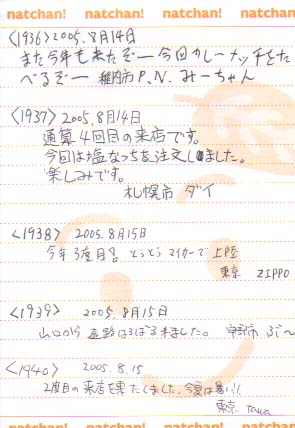 natchan! natchan! natchan! natchan!
<1936> 2005.8月14日
また今年も来たぞー 今回カレーナッチをた
べるぞー 稚内市 P.N. みーちゃん
<1937> 2005.8月14日
通算4回目の来店です。
今回は塩なっちを注文しました。
楽しみです。
札幌市 ダイ
<1938> 2005.8月15日
今年3度目 とうとうマイカーで上陸
東京 ZIPPO
<1939> 2005.8月15日
山口から はるばる来ました。
<1940> 2005.8.15
2度目の来店を果たしました。今夏は暑い!!
東京
natchan! natchan! natchan! natchan!